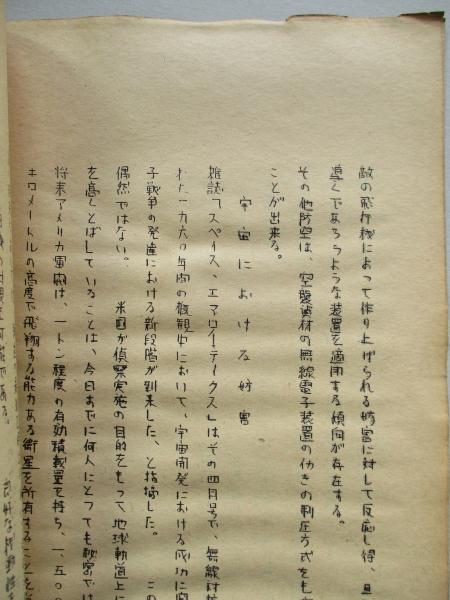 敵の飛行機によって作り上げられる妨害に対して反応し得、且
導くであろうような装置を適用する傾向が存在する。
その他防空は、空襲資材の無線電子装置の仂きの制圧方式をも
ことが出来る。
宇宙における妨害
雑誌『スペイス、エアロノーティクス』はその四月号で、無線
わた一九六〇年間の概観史において、宇宙開発における成功に
子戦争の発達における新段階が到来した、と指摘した。 この
偶然ではない。 米国が偵察実施の目的をもって地球軌道上に
を高くとばしていることは、今日までに何人にとっても秘密では
将来アメリカ軍閥は、一トン程度の有効積載量を持ち、一、五〇〇
キロメートルの高度で飛翔する能力ある衛星を所有することを